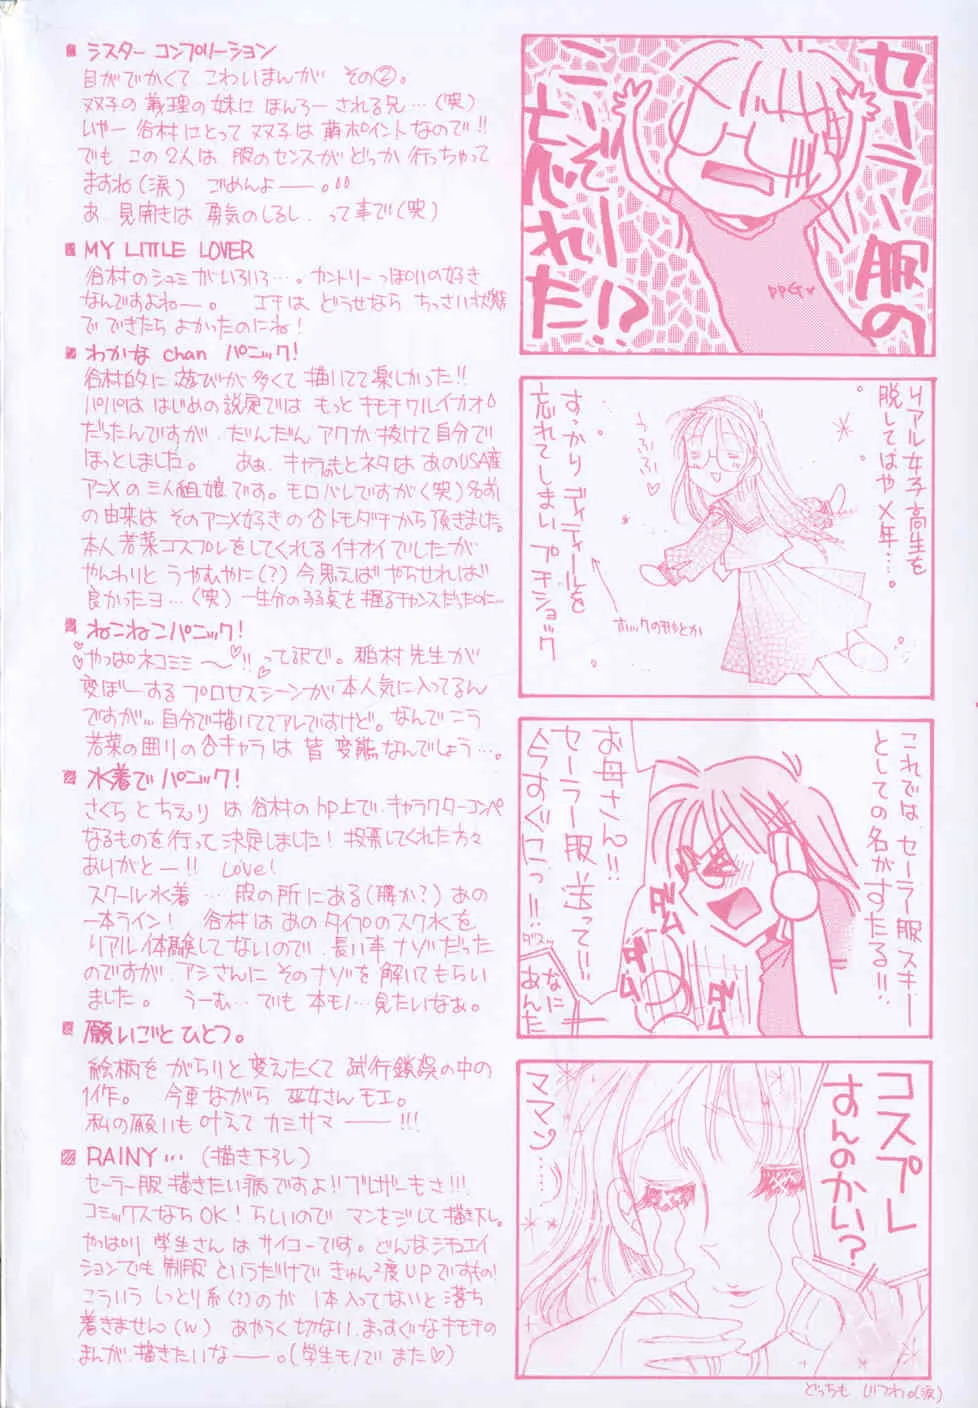 シスター コンプリーション
目がでかくて こわいまんが その②。
双子の義理の妹に ほんろーされる兄…(笑)
いやー谷村にとって双子は萌ポイントなので!!
でも この2人は 服のセンスが どっか行っちゃって
ますね(涙) ごめんよ——。
あ、見開きは 勇気のしるし、って事で(笑)
MY LITTLE LOVER
谷村のシュミがいろいろ…。カントリーっぽいの好き
なんですよねー。 エチは、どうせなら ちっさい状態
で できたら よかったのにね!
わかな chan パニック!
谷村的に 遊びが多くて 描いてて楽しかった!!
パパは はじめの設定では もっと キモチワルイカオ
だったんですが、だんだん アクが抜けて自分で
ほっとしました。 あぁ、キャラのもとネタは あのUSA産
アニメの三人組娘です。モロバレですが(笑)名前
の由来は そのアニメ好きの 合トモダチから頂きました。
本人 若菜コスプレをしてくれる イキオイでしたが
やんわりと うやむやに(?)今思えば やらせれば
良かったヨ…(笑) 一生分の弱点を握るチャンスだったのに…
ねこねこパニック!
やっぱネコミミ〜!! って訳で。稲村先生が
変ぼーする プロセスシーンが 本人気に入ってるん
ですが、自分で描いててアレですけど。なんで こう
若菜の囲りの合キャラは 皆 変態なんでしょう…。
水着で パニック!
さくら と ちえり は 谷村のhp上で、キャラクターコンペ
なるものを行って決定しました! 投票してくれた方々
ありがとー!! Love!
スクール水着 … 股の所にある(腰か?)あの
一本ライン! 谷村は あのタイプのスク水を
リアル体験してないので、長い事ナゾだった
のですが、アシさんに そのナゾを解いてもらい
ました。 うーむ…でも 本モノ…見たいなぁ。
願いごと ひとつ。
絵柄を がらりと変えたくて 試行錯誤の中の
1作。 今更ながら 巫女さんモエ。
私の願いも 叶えて カミサマ——!!!
RAINY… (描き下ろし)
セーラー服 描きたい病ですよ!!ブレザーもさ!!!
コミックスならOK! らしいので マンをジして描き下し。
やっぱり 学生さんは サイコーです。どんなシチュエイ
ションでも 制服 というだけで きゅん2度UPですもの!
こういう しっとり系(?)のが 1本入ってないと落ち
着きません(w) あやうく切ない、まっすぐなキモチの
まんが、描きたいな——。(学生モノで また♡)
セーラー服の
ことぞれー
た!?
PPG
リアル女子高生を
脱してはや×年…。
うろうろ
すっかり ディテールを
忘れてしまい プチショック
ホックの形とか
これでは セーラー服スキー
としての名がすたる!!
お母さん!!
セーラー服送って!!
今すぐにっ!!
ダム
ダム
ダム
なに
あんた
コスプレ
すんのかい?
ママン……
どっちも じつわ。(涙)